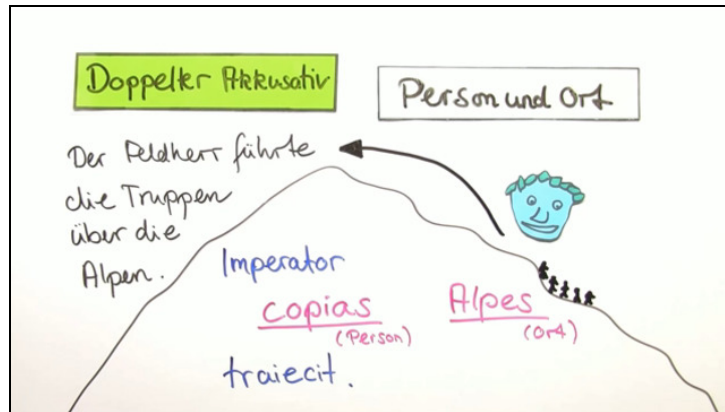 Doppelter Akkusativ
Person und Ort
Der Feldherr führte
die Truppen
über die
Alpen.
Imperator
copias Alpes
(Person) (Ort)
traiecit.